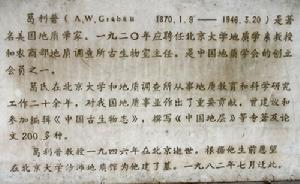 葛利普（A.W.Grabau 1870.1.9—1946.3.20）是著
名美国地质学家。一九二〇年应聘任北京大学地质学系教授
和农商部地质调查所古生物室主任。是中国地质学会的创立
会员之一。
葛氏在北京大学和地质调查所从事地质教育和科学研究
工作二十余年，对我国地质事业作出了重要贡献，曾建议和
参加编辑《中国古生物志》，撰写《中国地层》等专著及论
文200多种。
葛利普教授一九四六年在北京逝世。根据他生前愿望
在北京大学沙滩地质馆为他建了墓。一九八二年七月迁此。